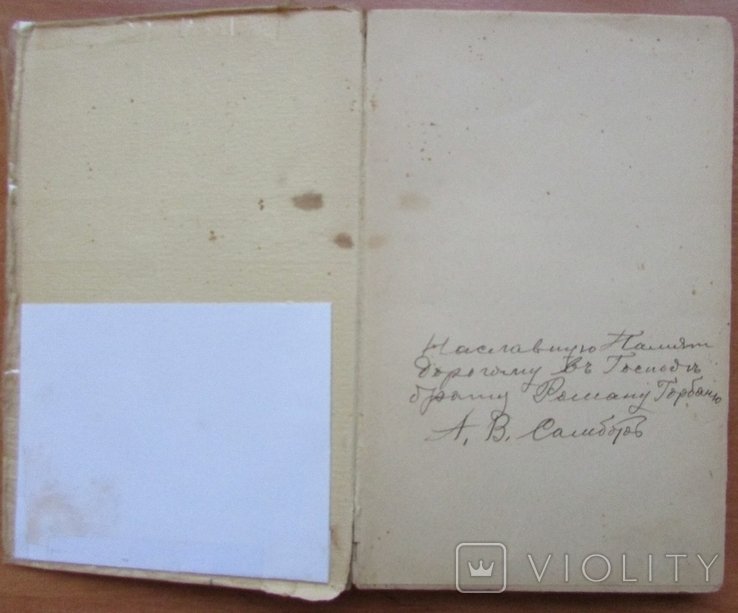 Наславную Памят
дорогому въ Господѣ
брату Роману Горбаню
А. В. Самборъ
VIOLITY